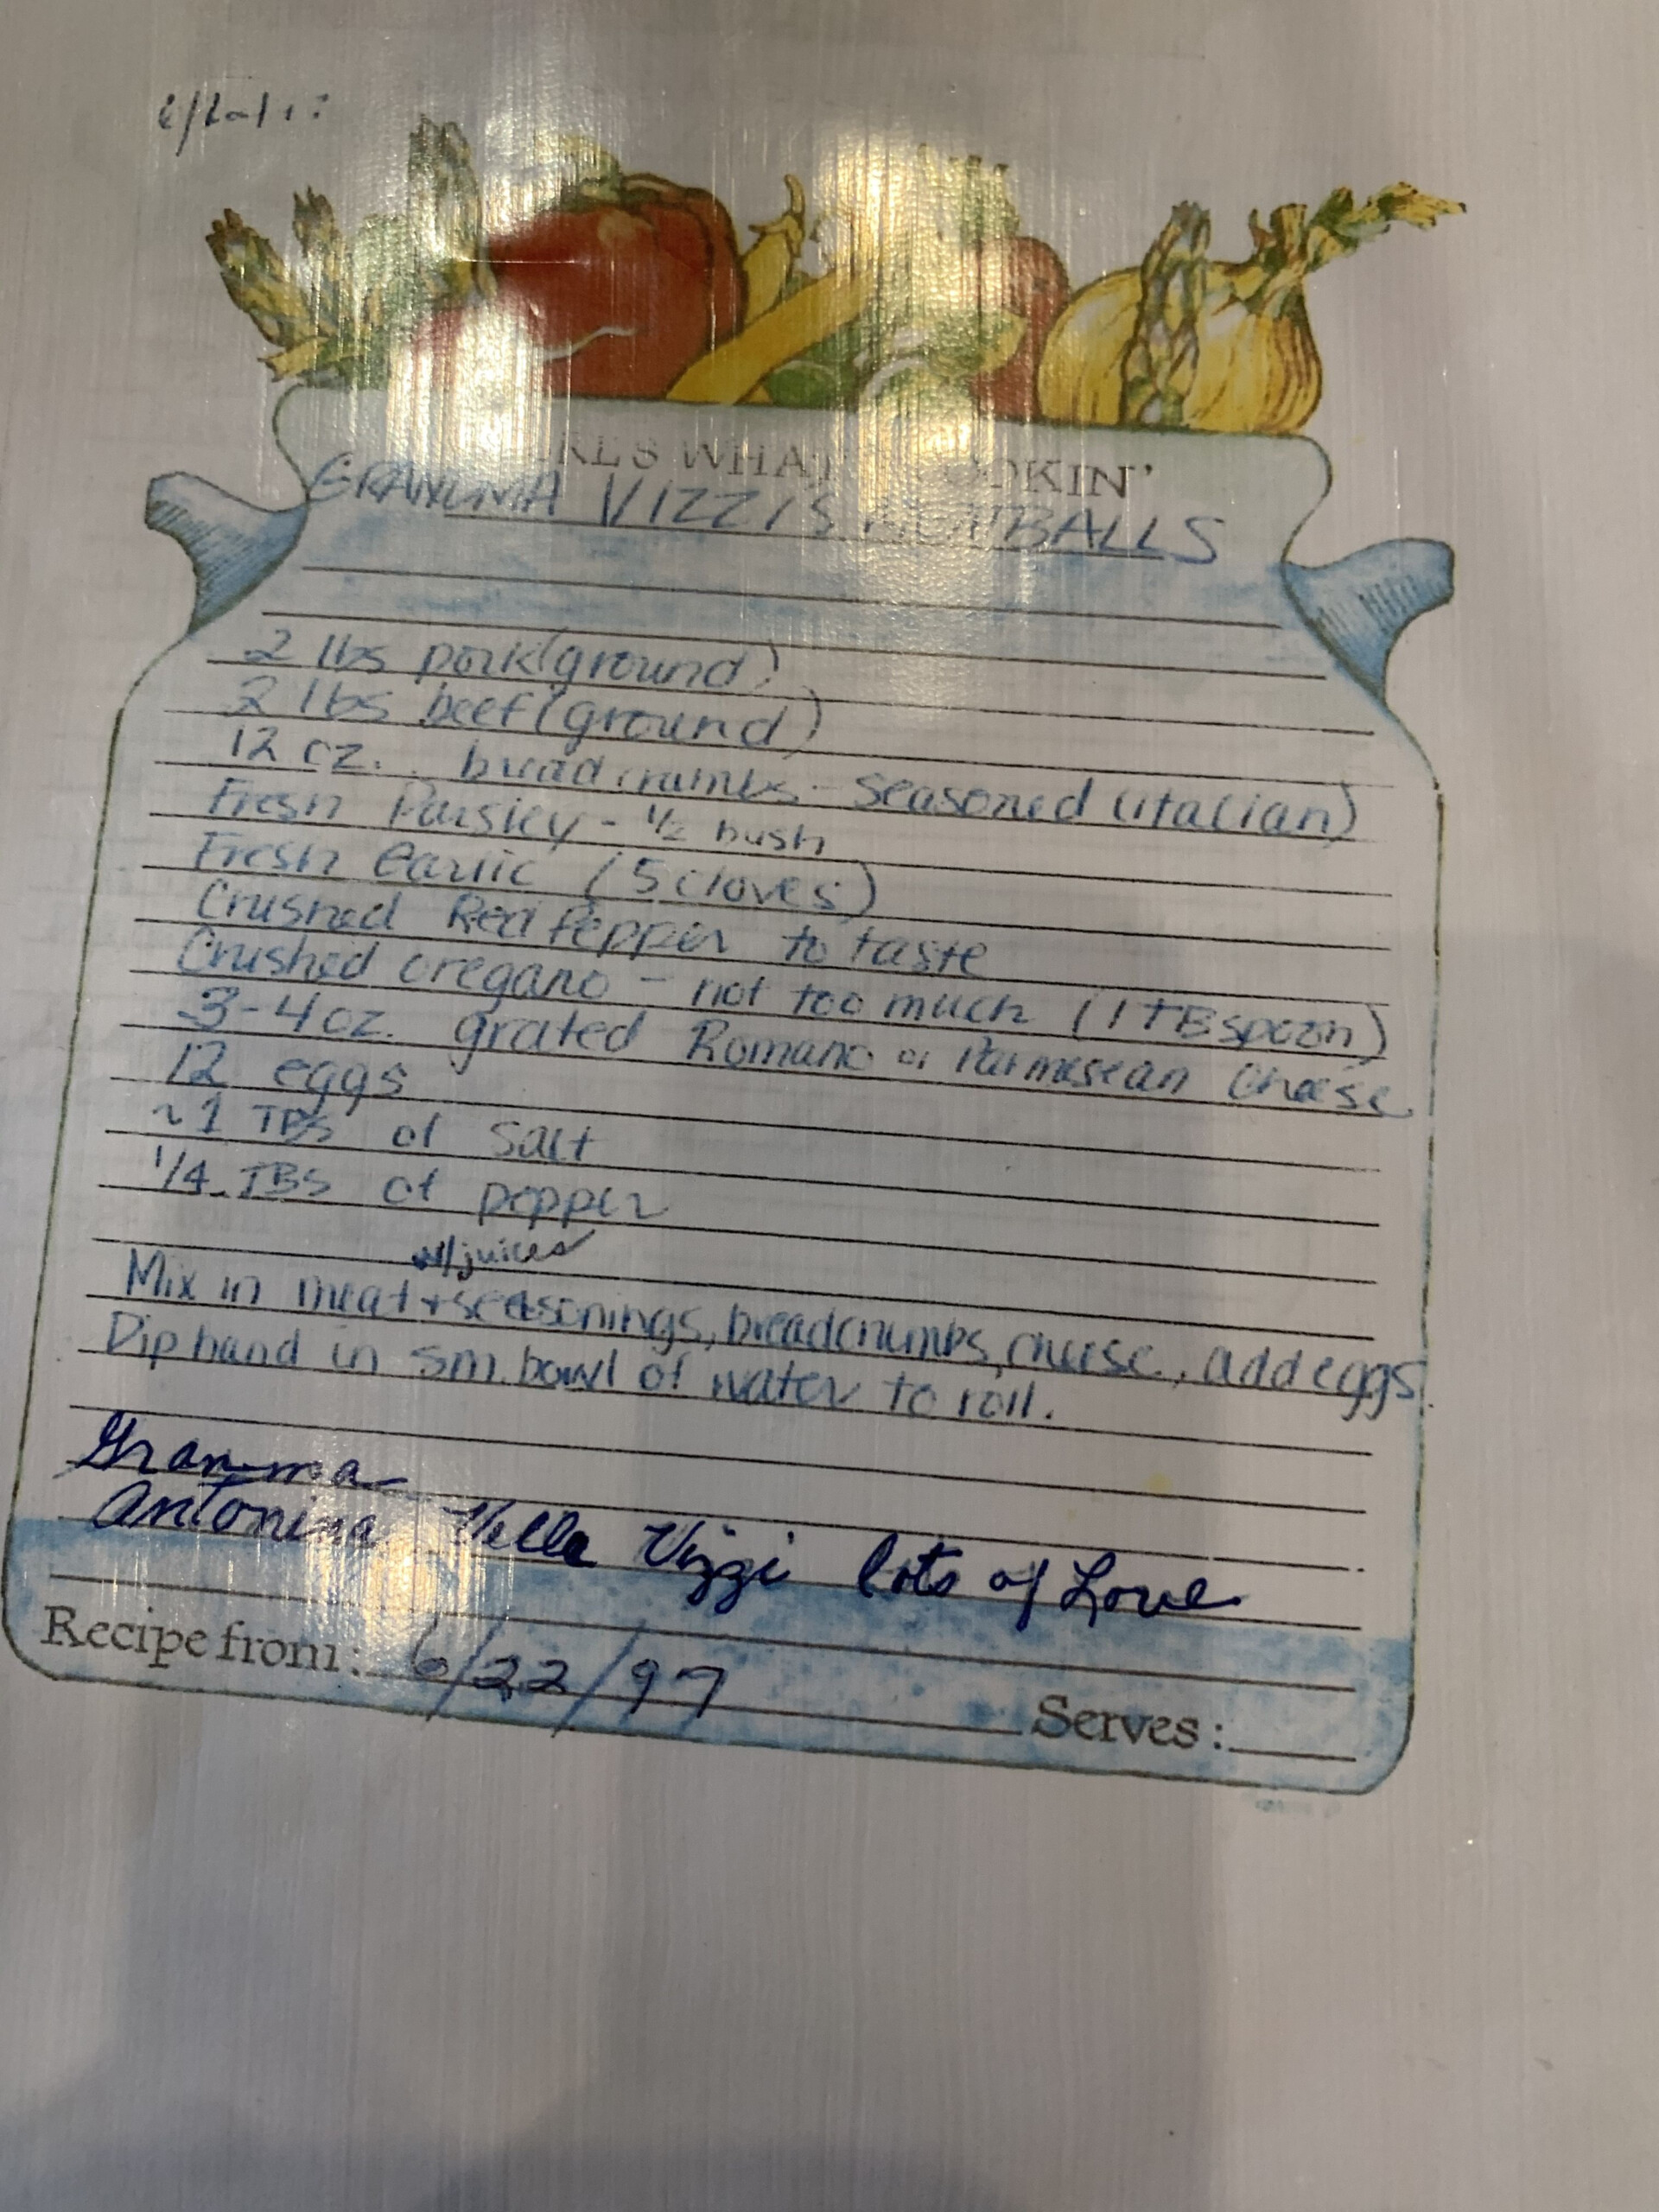 WHAT COOKIN'
GRANDMA VIZZI'S MEATBALLS
2 lbs pork (ground)
2 lbs beef (ground)
12 oz. bread crumbs - seasoned (italian)
Fresh Parsley - 1/2 bush
Fresh Garlic (5 cloves)
Crushed Red Pepper to taste
Crushed oregano - not too much (1 TBspoon)
3-4 oz. grated Romano or Parmesean Cheese
12 eggs
~1 TBS of salt
1/4 TBS of pepper
w/juices
Mix in meat + seasonings, breadcrumbs, cheese, add eggs.
Dip hand in sm. bowl of water to roll.
Granma
Antonina Vella Vizzi lots of Love
Recipe from: 6/22/97
Serves: